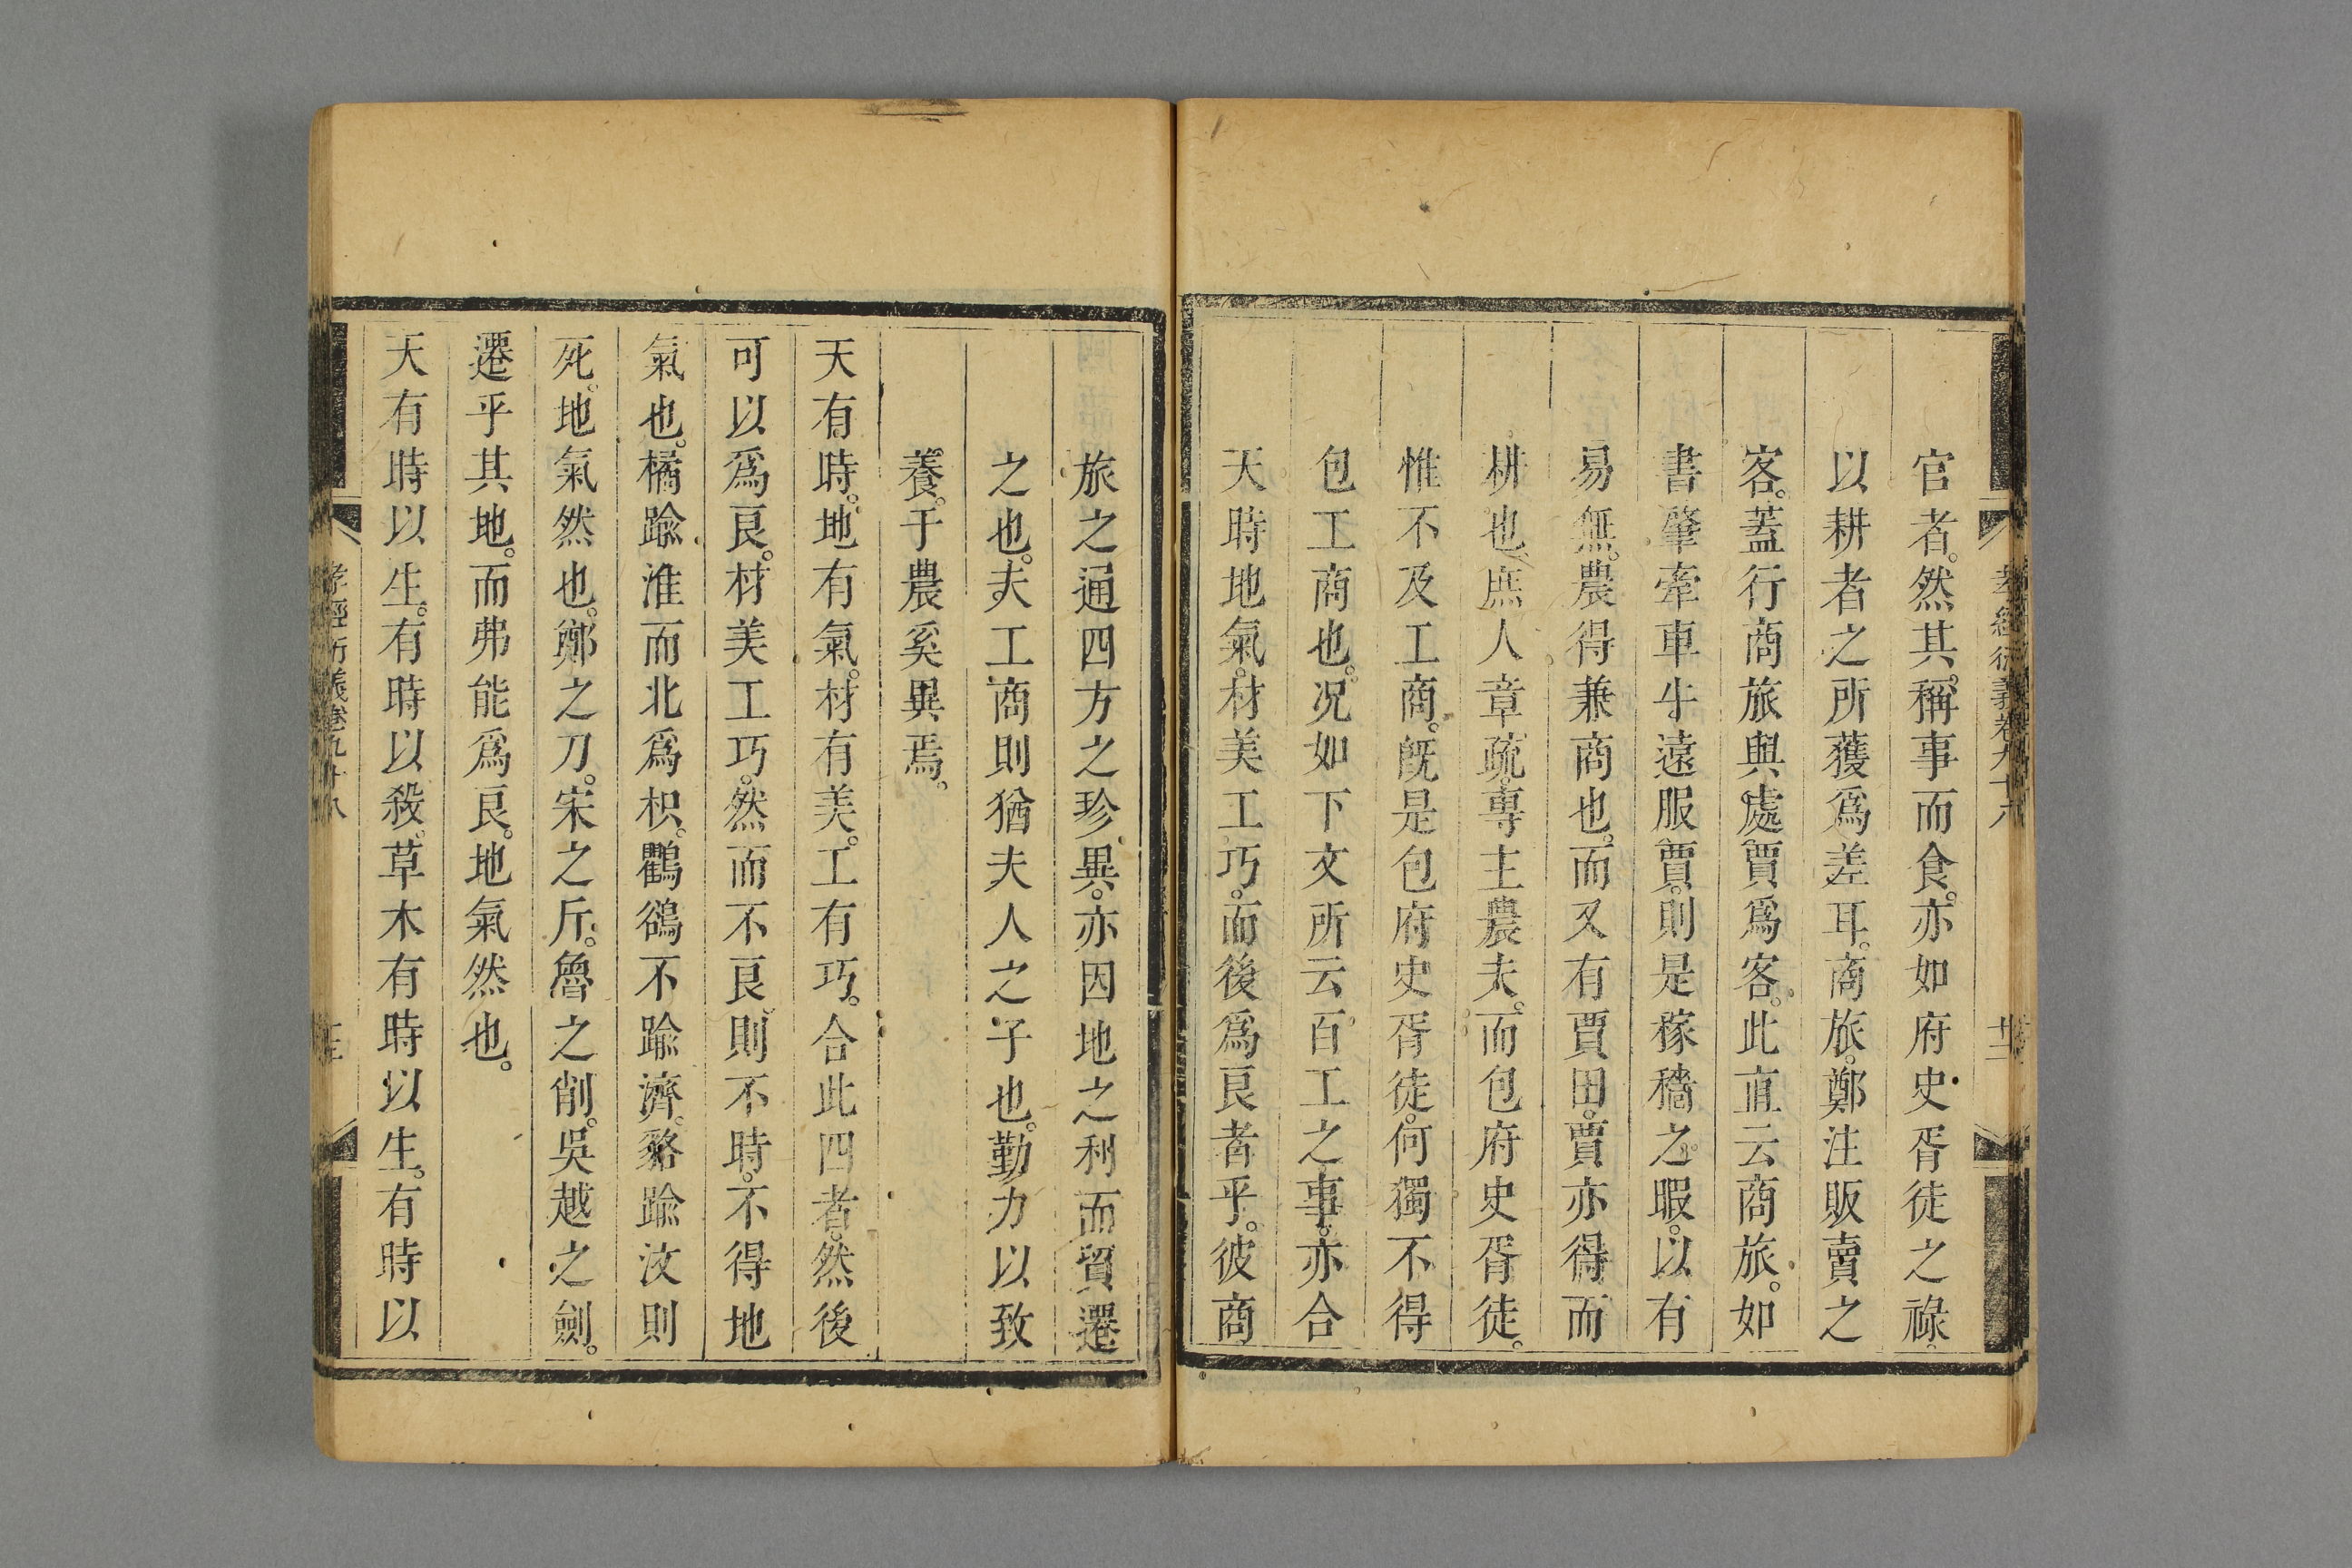 孝經衍義卷九十八
官者。然其。稱事而食。亦如府史胥徒之祿。
以耕者之所獲爲差耳。商旅。鄭注販賣之
客。蓋行商旅與處賈爲客。此直云商旅。如
書肇牽車牛遠服賈。則是稼穡之暇。以有
易無。農得兼商也。而又有賈田。賈亦得而
耕也。庶人章疏。專主農夫。而包府史胥徒。
惟不及工商。旣是包府史胥徒。何獨不得
包工商也。况如下文所云百工之事。亦合
天時地氣。材美工巧。而後爲良者乎。彼商
旅之通四方之珍異。亦因地之利而貿遷
之也。夫工商則猶夫人之子也。勤力以致
養。于農奚異焉。
天有時。地有氣。材有美。工有巧。合此四者。然後
可以爲良。材美工巧。然而不良。則不時。不得地
氣也。橘踰淮而北爲枳。鸜鵒不踰濟。貉踰汶則
死。地氣然也。鄭之刀。宋之斤。魯之削。吳越之劍。
遷乎其地。而弗能爲良。地氣然也。
天有時以生。有時以殺。草木有時以生。有時以
孝經衍義卷九十八